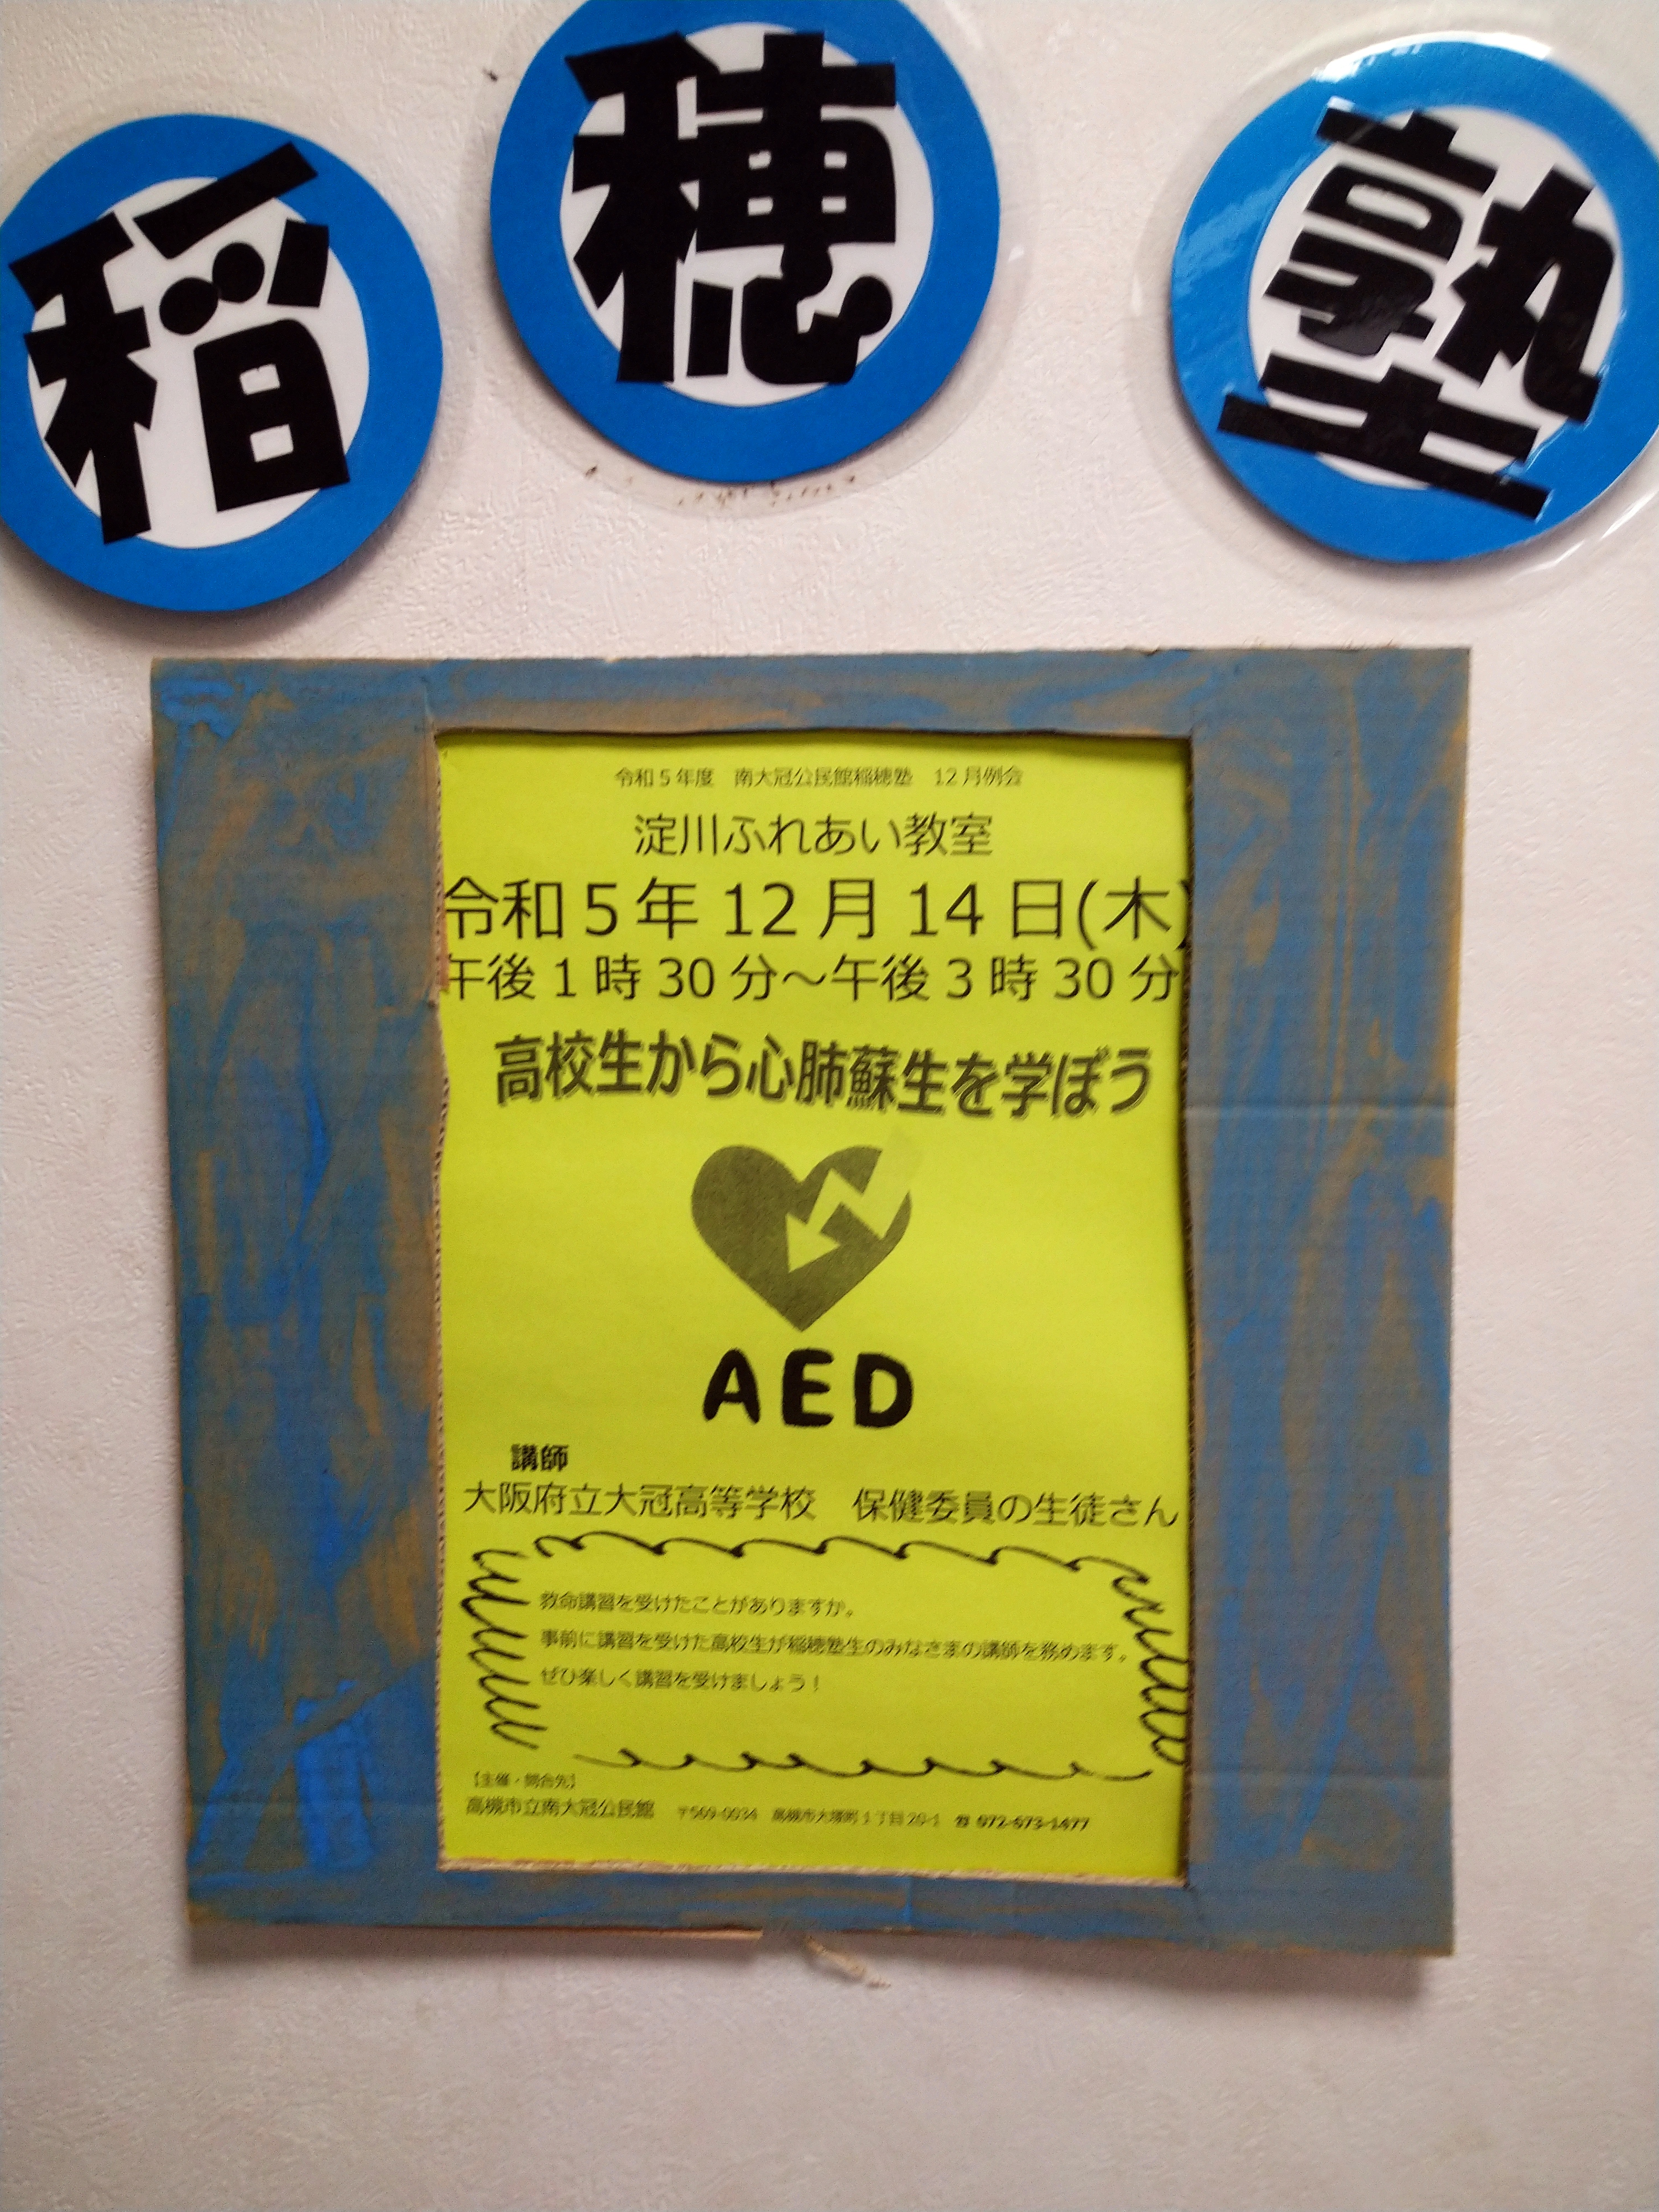 稲穂塾
令和5年度　南大冠公民館稲穂塾　12月例会
淀川ふれあい教室
令和5年12月14日(木)
午後1時30分～午後3時30分
高校生から心肺蘇生を学ぼう
AED
講師
大阪府立大冠高等学校　保健委員の生徒さん
救命講習を受けたことがありますか。
事前に講習を受けた高校生が稲穂塾生のみなさまの講師を務めます。
ぜひ楽しく講習を受けましょう！
【主催・問合先】
高槻市立南大冠公民館　〒569-0034　高槻市大塚町1丁目20-1　☎ 072-673-1477